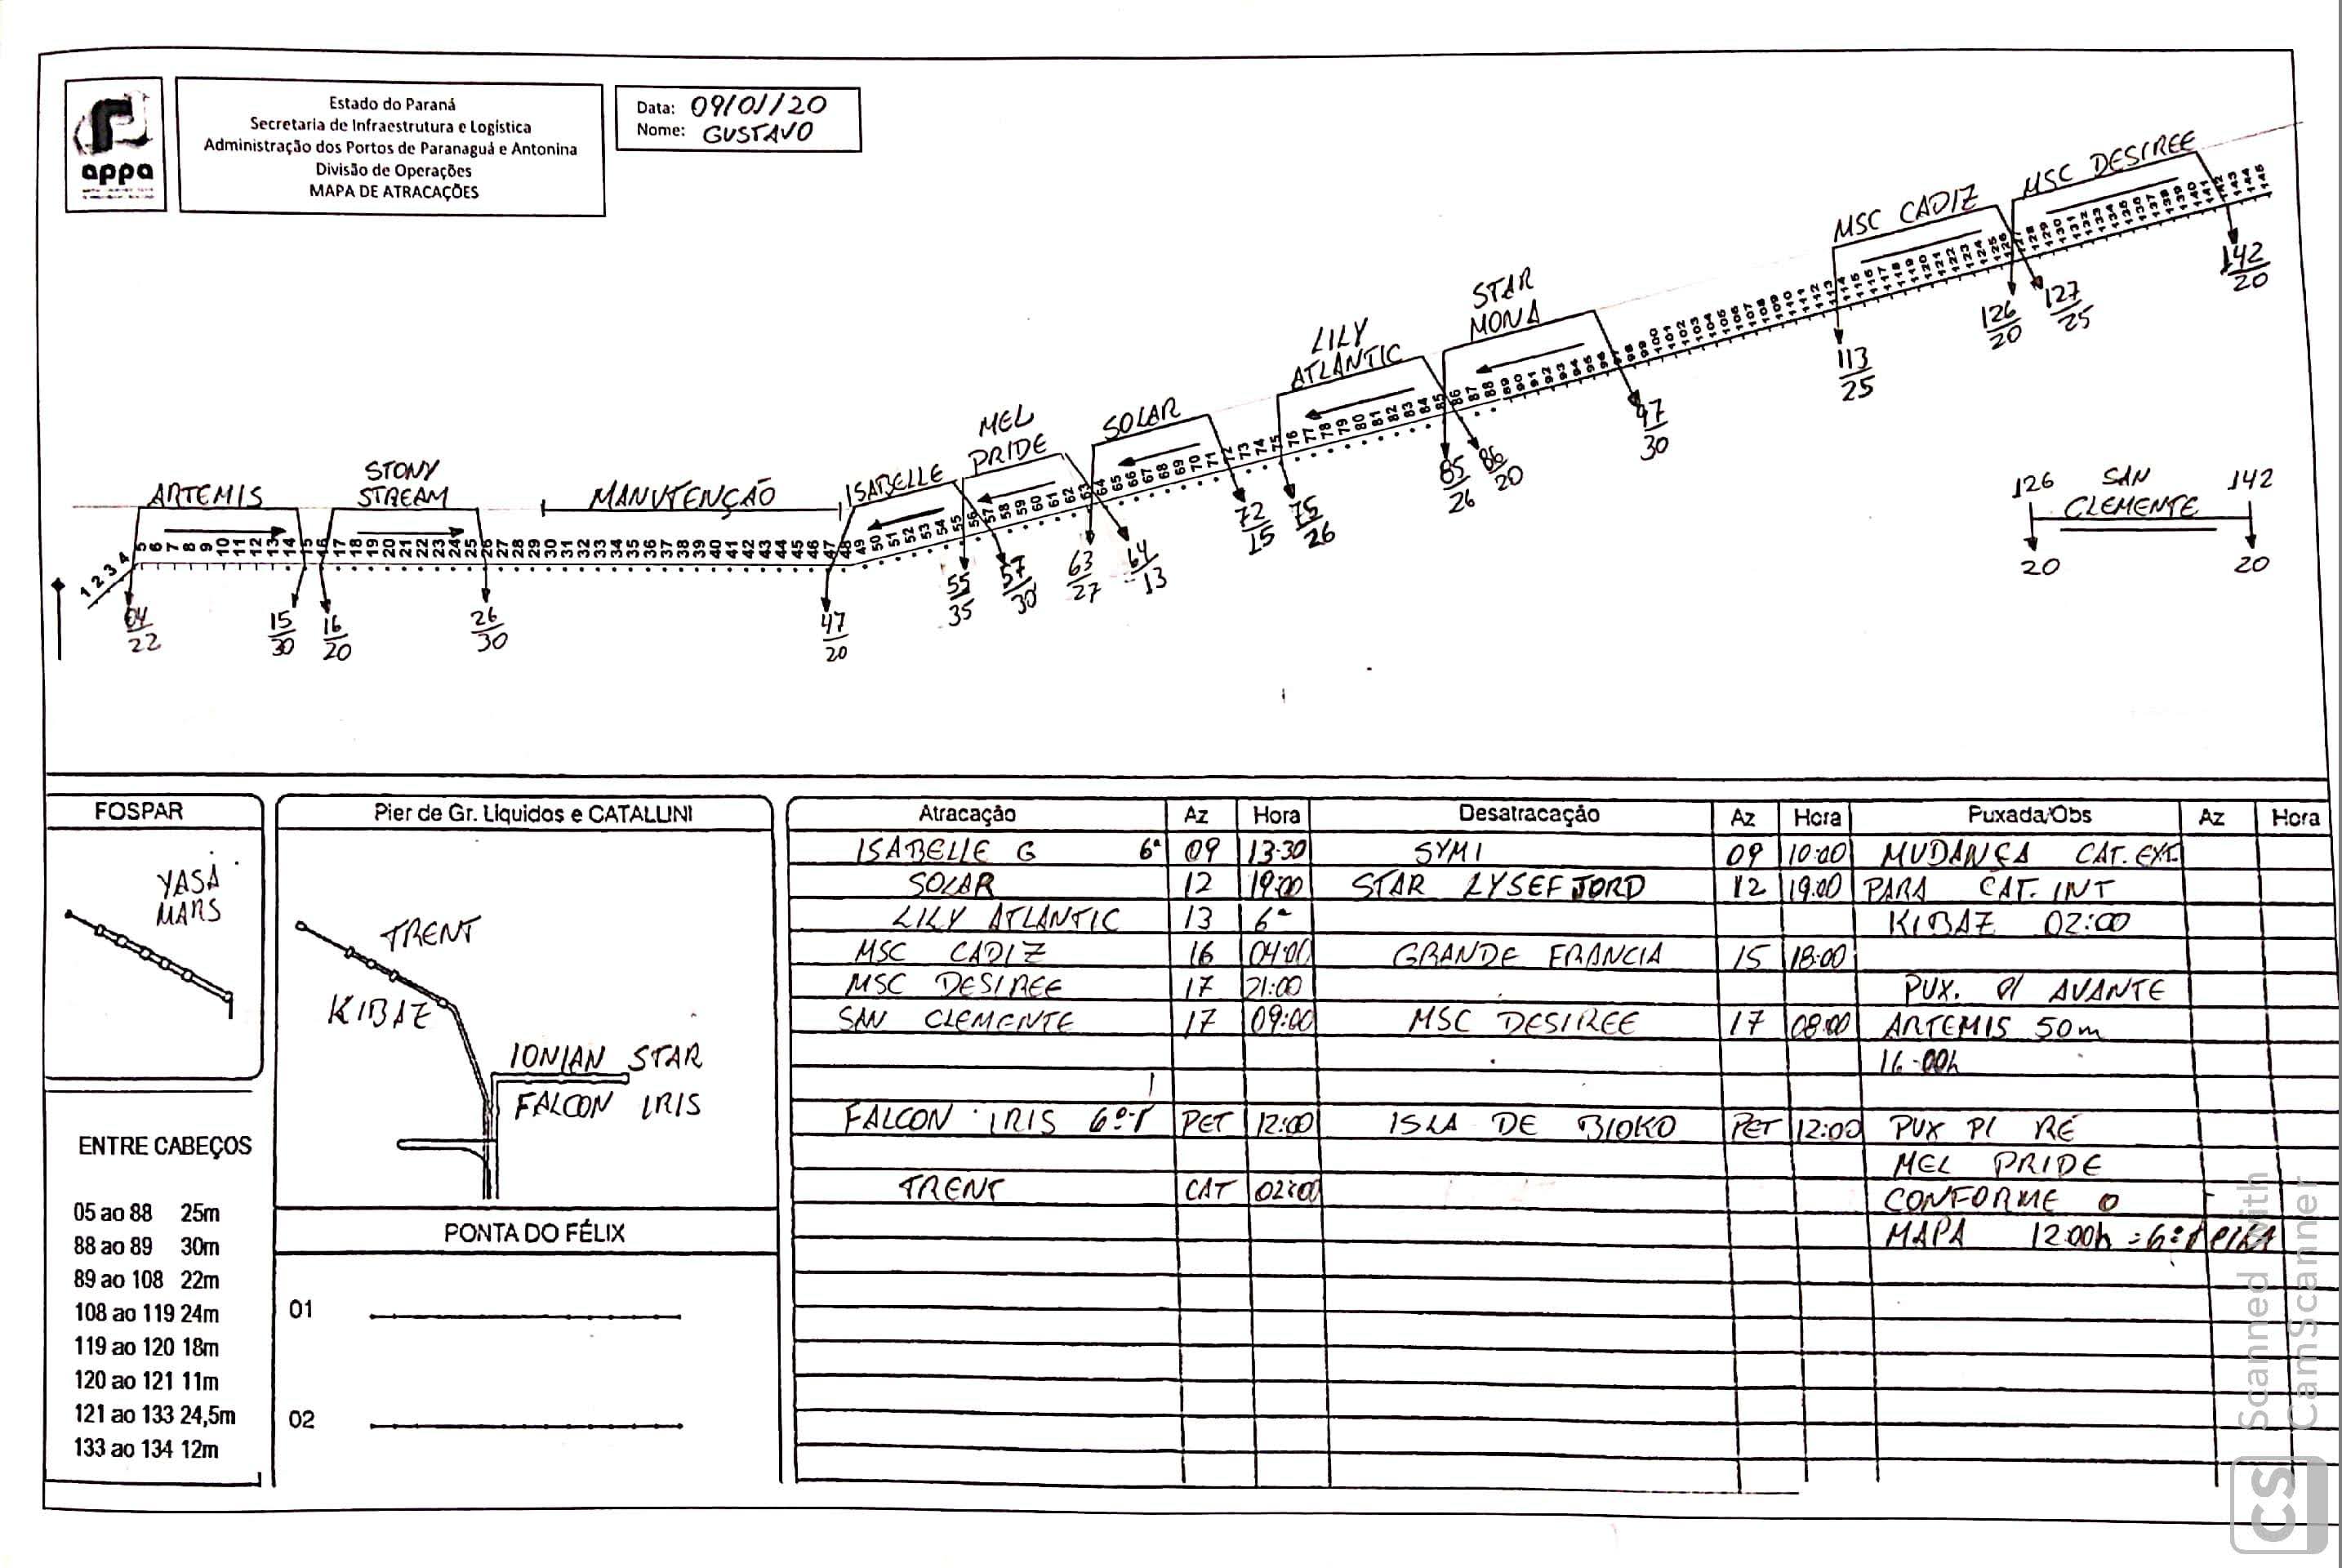 appa
Estado do Paraná
Secretaria de Infraestrutura e Logística
Administração dos Portos de Paranaguá e Antonina
Divisão de Operações
MAPA DE ATRACAÇÕES
Data: 09/01/20
Nome: GUSTAVO
MSC DESIREE
MSC CADIZ
STAR
MONA
LILY
ATLANTIC
SOLAR
MEL
PRIDE
ISABELLE
MANUTENÇÃO
STONY
STREAM
ARTEMIS
1 2 3 4 5 6 7 8 9 10 11 12 13 14 15 16 17 18 19 20 21 22 23 24 25 26 27 28 29 30 31 32 33 34 35 36 37 38 39 40 41 42 43 44 45 46 47 48 49 50 51 52 53 54 55 56 57 58 59 60 61 62 63 64 65 66 67 68 69 70 71 72 73 74 75 76 77 78 79 80 81 82 83 84 85 86 87 88 89 90 91 92 93 94 95 96 97 98 99 100 101 102 103 104 105 106 107 108 109 110 111 112 113 114 115 116 117 118 119 120 121 122 123 124 125 126 127 128 129 130 131 132 133 134 135 136 137 138 139 140 141 142 143 144 145
04/22
15/30
16/20
26/30
47/20
55/35
57/30
63/27
64/13
72/15
75/26
85/26
86/20
97/30
113/25
126/20
127/25
142/20
126 SAN 142
CLEMENTE
20 20
FOSPAR
YASA
MARS
ENTRE CABEÇOS
05 ao 88 25m
88 ao 89 30m
89 ao 108 22m
108 ao 119 24m
119 ao 120 18m
120 ao 121 11m
121 ao 133 24,5m
133 ao 134 12m
Pier de Gr. Líquidos e CATALLINI
TRENT
KIBAZ
IONIAN STAR
FALCON IRIS
PONTA DO FÉLIX
01
02
Atracação Az Hora Desatracação Az Hora Puxada/Obs Az Hora
ISABELLE G 6ª 09 13:30 SYMI 09 10:00 MUDANÇA CAT. EXT
SOLAR 12 19:00 STAR LYSEFJORD 12 19:00 PARA CAT. INT
LILY ATLANTIC 13 6ª KIBAZ 02:00
MSC CADIZ 16 04:00 GRANDE FRANCIA 15 18:00
MSC DESIREE 17 21:00 PUX. P/ AVANTE
SAN CLEMENTE 17 09:00 MSC DESIREE 17 08:00 ARTEMIS 50m
16:00h
FALCON IRIS PET 12:00 ISLA DE BIOKO PET 12:00 PUX P/ RÉ
MEL PRIDE
TRENT CAT 02:00 CONFORME O
MAPA 12:00h
Scanned with
CamScanner
CS